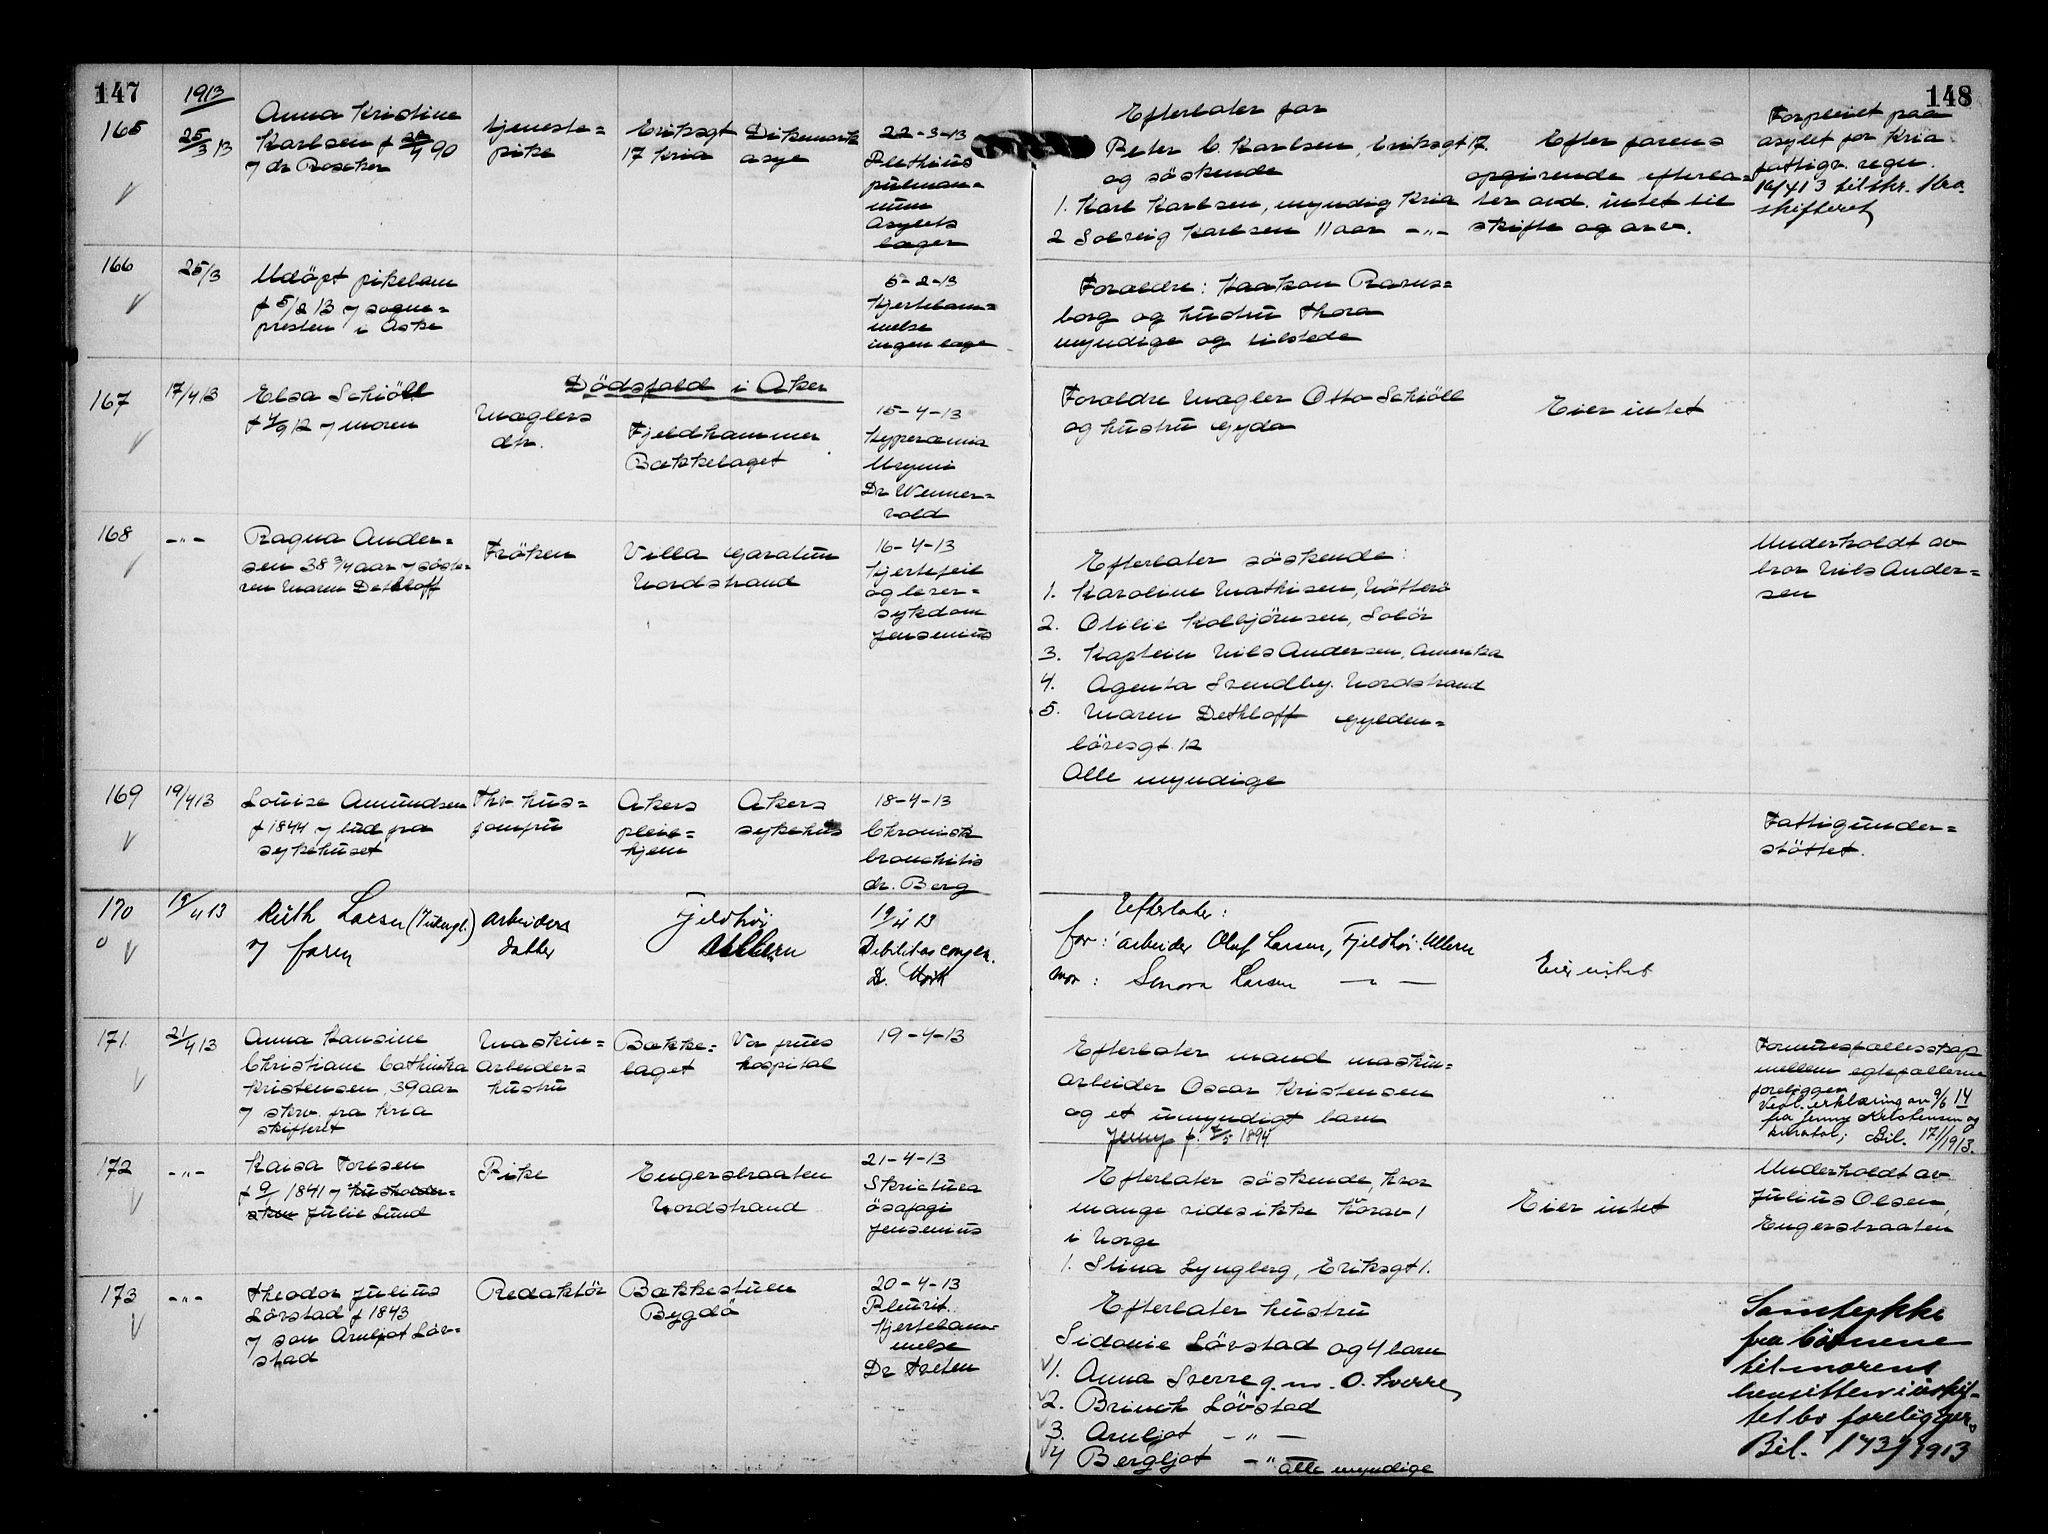 147
148
1913
165
25/3 13
Anna Kristine
Karlsen f 28/4 90
7 dr Roscher
tjeneste=
pike
Eriksgt
17 Kria
Dikemark
asyl
22-3-13
Plethius
pulmon=
num
Asylets
læger
Efterlater far
Peter C. Karlsen, Eriksgt 17.
og söskende
1. Karl Karlsen, myndig Kria
2 Solveig Karlsen 11 aar -"-
Efter farens
opgivende efterla=
ter avd. intet til
skifte og arv.
Forpleiet paa
asylet for Kria
fattigv. regn.
16/4 13 tilskr. Kra.
skifteret
166
25/3
Udöpt pikebarn
f 5/2 13 7 sogne=
presten i Aske
5-2-13
Hjertelam=
melse
ingen læge
Foreldre: Haakon Ravns=
borg og hustru Thora
myndige og tilstede
Dödsfald i Aker
167
17/4 13
Elsa Schiöll
f 4/9 12 7 moren
Mæglers
dtr.
Fjeldhammer
Bækkelaget
15-4-13
Hyperæmia
Dr Wenner=
vold
Foreldre mægler Otto Schiöll
og hustru Gyda
Eier intet
168
-"-
Ragna Ander=
sen 38 3/4 aar 7 söste=
ren Maren Dethloff
Fröken
Villa Garatun
Nordstrand
16-4-13
Hjertefeil
og lever=
sykdom
Jensenius
Efterlater söskende:
1. Karoline Mathisen, Nötterö
2. Otilie Kolbjörnsen, Solör
3. Kaptein Nils Andersen, Amerika
4. Agenta Svendby. Nordstrand
5. Maren Dethloff Gylden=
lövesgt. 12
Alle myndige
Underholdt av
bror Nils Ander=
sen
169
19/4 13
Louise Amundsen
f 1844 7 bud fra
sykehuset
Fhv hus=
jomfru
Akers
pleie=
hjem
Akers
sykehus
18-4-13
Chronisk
bronchitis
dr. Berg
Fattigunder=
stöttet.
170
19/4 13
Ruth Larsen (Tvilngl.)
7 faren
Arbeiders
datter
Fjeldhöi
Ullern
19/4 13
Debilitas congen.
D. Mork
Efterlater:
far: arbeider Oluf Larsen, Fjeldhöi Ullern
mor: Senora Larsen — " —
Eier intet
171
21/4 13
Anna Hansine
Christiane Cathinka
Kristensen, 39 aar
7 skrv. fra Kria
skifteret
Maskin=
arbeiders
hustru
Bække=
laget
Vor frues
hospital
19-4-13
Efterlater mand maskin=
arbeider Oscar Kristensen
og et umyndigt barn
Jenny f. 4/5 1894
Formuesfællesskap
mellem egtefællerne
foreligger
Vedl. erklæring av 9/6 14
fra Jenny Kristensen og
Bil. 171/1913.
172
-"-
Kaisa Toresen
f 9/ 1841 7 husholder=
sken Julie Lund
Pike
Engersbraaten
Nordstrand
21-4-13
Skrictura
ösofagi
Jensenius
Efterlater söskende, hvor
mange vides ikke hvorav 1
i Norge
1. Stina Lyngberg, Eriksgt 1.
Eier intet
Underholdt av
Julius Olsen,
Engersbraaten
173
-"-
Theodor Julius
Lövstad f 1843
7 søn Arnljot Löv=
stad
Redaktör
Bakkestuen
Bygdö
20-4-13
Pleurit.
Hjertelam=
melse
Dr Tveten
Efterlater hustru
Sidonie Lövstad og 4 barn
1. Anna Sverre g.m. O. Sverre
2. Brinch Lövstad
3. Arnljot -"-
4 Bergljot -"- alle myndige
Samtykke
fra börnene
til morens
hensitten i uskif=
tet bo foreligger
Bil. 173/1913